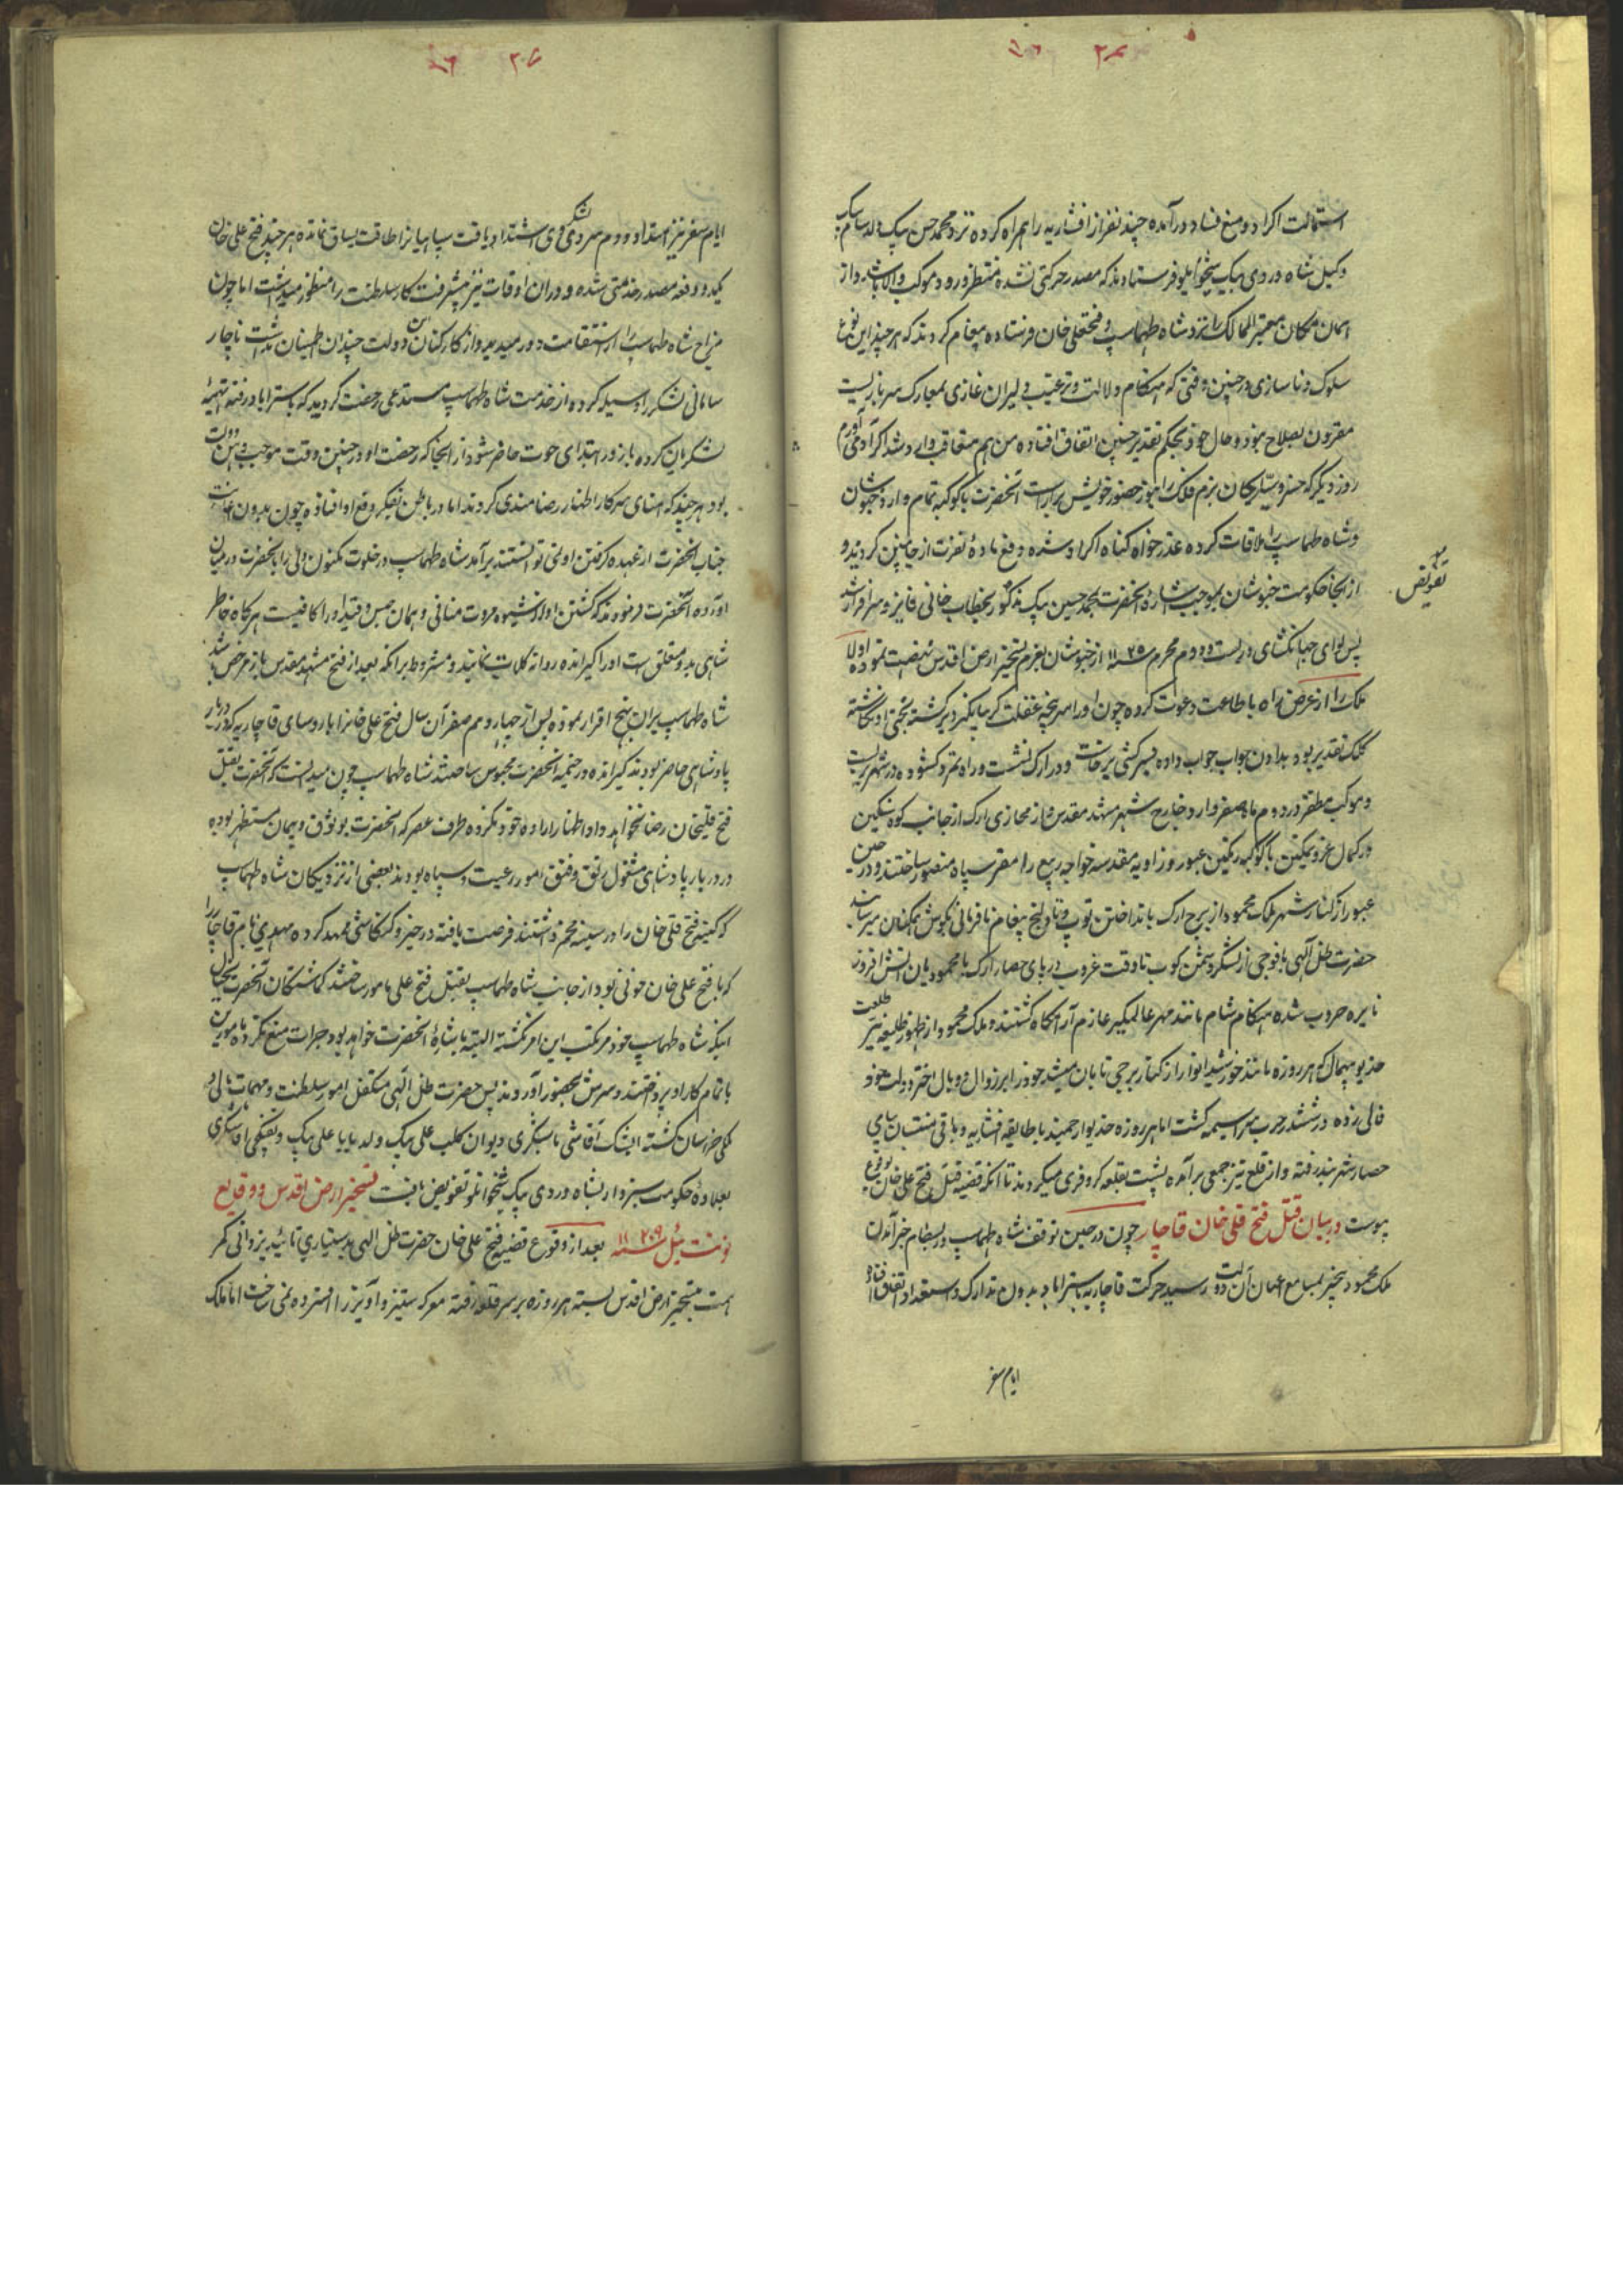 استمالت اکراد و منع فساد درآمده چند نفر از افشاریه را همراه کرده نزد محمد حسن بیک ولد سام بیک
وکیل شاه دردی بیک شیخوانلو فرستادند که مصدر حرکتی نشده منتظر ورود موکب والا باشد و از
همان مکان معیر الممالک را نزد شاه طهماسب و فتحعلی خان فرستاده پیغام کردند که هر چند این نوع
سلوک و ناسازی در چنین وقتی که هنگام دلالت و ترغیب دلیران غازی بمعارک سربازیست
مقرون بصلاح نبود و حال خود بحکم تقدیر چنین اتفاق افتاده من هم متعاقب وارد
روز دیگر که خسرو سیارگان بزم فلک را بنور حضور خویش براراست آنحضرت با کوکبه تمام وارد خبوشان
و شاه طهماسب را ملاقات کرده عذر خواه کناه اکراد شده و رفع ماده نفرت از جانبین کردند و
تفویض
از انجا حکومت خبوشان بموجب اشاره آنحضرت بمحمد حسین بیک مذکور بخطاب خانی فایز و سرافراز شد
پس لوای جهانکشای در بیست و دوم محرم سنه ۱۱۳۹ از خبوشان بعزم تسخیر ارض اقدس نهضت نموده اولا
ملک را از عرض راه باطاعت دعوت کرده چون او را سرپنجه غفلت کریبانگیر و برکشته بختی او نکاشته
کلک تقدیر بود بدادن جواب جواب داده بسرکشی برخاست و در ارک نشست و راه تمرد کشوده در شهر بست
و موکب مظفر در دوم ماه صفر وارد خارج شهر مشهد مقدس و از محاذی ارک از جانب کوه سنگین
در کمال عز و تمکین با کوکبه رنگین عبور و زاویه مقدسه خواجه ربیع را مقر سپاه منصور ساختند و در حین
عبور از کنار شهر ملک محمود از برج ارک بانداختن توپ و تفنک پیغام نافرمانی بکوش همکنان میرساند
حضرت ظل الهی با فوجی از لشکر دشمن کوب تا وقت غروب در پای حصار ارک با محمودیان آتش افروز
نایره حروب شده هنگام شام مانند مهر عالمگیر عازم آرامگاه کشتند و ملک محمود از ظهور طلیعه نیر طلعت
خدیو بیهمال که هر روزه مانند خورشید انوار از کنار برجی تابان میشد خود را برابر زوال و وبال اختر دولت خود
فالی زده در ششدر حرب سراسیمه کشت اما هر روزه خدیو ارجمند با طایفه افشاریه و باقی منتسبان بپای
حصار شهر بند رفته و از قلعه نیز جمعی برآمده پشت بقلعه کر و فری میکردند تا آنکه قضیه قتل فتح علی خان بوقوع
پیوست در بیان قتل فتح قلی خان قاجار چون در حین توقف شاه طهماسب در بسطام خبر آمدن
ملک محمود بمسامع اعیان آن دولت رسید حرکت قاجاریه باسترآباد بدون تدارک و استعداد اتفاق افتاده
ایام سفر
ایام سفر نیز امتداد و دوم سردی دی اشتداد یافت سپاهیانرا طاقت یساق نمانده هر چند فتح علی خان
یکدو دفعه مصدر خدمتی شده و در ان اوقات نیز پیشرفت کار سلطنت را منظور میداشت اما چون
مزاج شاه طهماسب را از استقامت دور میدید و از کارکنان دولت چندان اطمینان نداشت ناچار
سامانی لشکر را وسیله کرده از خدمت شاه طهماسب مستدعی رخصت کردید که باسترآباد رفته تهیه
لشکریان کرده باز در ابتدای حوت حاضر شود از انجا که رخصت او در چنین وقت موجب وهن دولت
بود هر چند که امنای سرکار اظهار رضامندی کردند اما در باطن بفکر دفع او افتاده چون بدون اعانت
جناب آنحضرت از عهده کرفتن او نمی توانستند برآمد شاه طهماسب در خلوت مکنون دلی را بآنحضرت در میان
آورده آنحضرت فرمودند که کشتن او از شیوه مروت منافی و همان حبس و قید او را کافیست هرگاه خاطر
شاهی بدو متعلق است او را گیرانده روانه کلات نمایند و مشروط برانکه بعد از فتح مشهد مقدس باز مرخص باشد
شاه طهماسب بران نهج اقرار نموده پس از چهاردهم صفر آن سال فتح علی خانرا با روسای قاجاریه که در دربار
پادشاهی حاضر بودند گیرانده در خیمه آنحضرت محبوس ساختند شاه طهماسب چون میدانست که آنحضرت بقتل
فتح قلیخان رضا نخواهد داد اظهار اراده خود نکرده طرف عصر که آنحضرت بوثوق و پیمان مستظهر بوده
در دربار پادشاهی مشغول رتق و فتق امور رعیت و سپاه بودند بعضی از نزدیکان شاه طهماسب
که کینه فتح قلی خان را در سینه مخمر داشتند فرصت یافته در خیز و کنکاشی ممهد کرده مهدی نام قاجار را
که با فتح علی خان خونی بود از جانب شاه طهماسب بقتل فتح علی مامور ساختند کماشتکان آنحضرت بخیال
اینکه شاه طهماسب خود مرتکب این امر نگشته البته باشاره آنحضرت خواهد بود جرات منع نکرده مامورین
باتمام کار او پرداختند و سرش بحضور آوردند پس حضرت ظل الهی متکفل امور سلطنت و مهمات مالی و
ملکی خراسان کشته ایشک آقاشی باشیگری دیوان بکلب علی بیک ولد بابا علی بیک و تفنگچی آقاسیگری
بعلاوه حکومت سبزوار بشاه دردی بیک شیخوانلو تفویض یافت تسخیر ارض اقدس و وقایع
بعد از وقوع قضیه فتح علی خان حضرت ظل الهی بدستیاری تائید یزدانی کمر
همت بتسخیر ارض اقدس بسته هر روزه بر سر قلعه رفته معرکه ستیز و آویز را افسرده نمی ساخت اما ملک